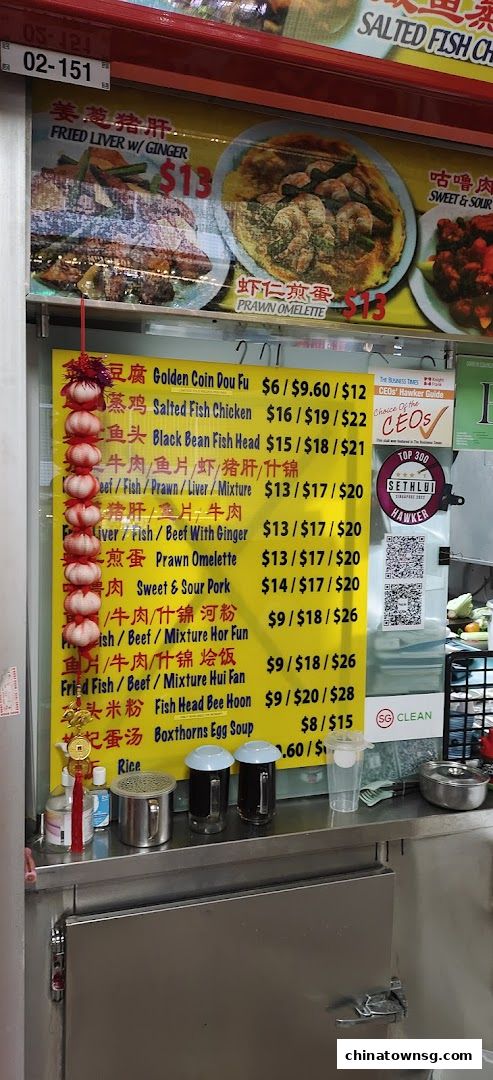 02-151
SALTED FISH CH
姜葱猪肝
FRIED LIVER W/ GINGER
$13
虾仁煎蛋
PRAWN OMELETTE
$13
咕噜肉
SWEET & SOUR
豆腐 Golden Coin Dou Fu $6 / $9.60 / $12
蒸鸡 Salted Fish Chicken $16 / $19 / $22
鱼头 Black Bean Fish Head $15 / $18 / $21
牛肉/鱼片/虾/猪肝/什锦
eef / Fish / Prawn / Liver / Mixture $13 / $17 / $20
猪肝/鱼片/牛肉
Liver / Fish / Beef With Ginger $13 / $17 / $20
煎蛋 Prawn Omelette $13 / $17 / $20
肉 Sweet & Sour Pork $14 / $17 / $20
/牛肉/什锦 河粉
ish / Beef / Mixture Hor Fun $9 / $18 / $26
鱼片/牛肉/什锦 烩饭
Fried Fish / Beef / Mixture Hui Fan $9 / $18 / $26
头米粉 Fish Head Bee Hoon $9 / $20 / $28
蛋汤 Boxthorns Egg Soup $8 / $15
Rice .60 /
THE BUSINESS TIMES Knight Frank
CEOs' Hawker Guide
Choice Of the
CEOs
TOP 300
SETHLUI
SINGAPORE 2022
HAWKER
SG CLEAN
chinatownsg.com